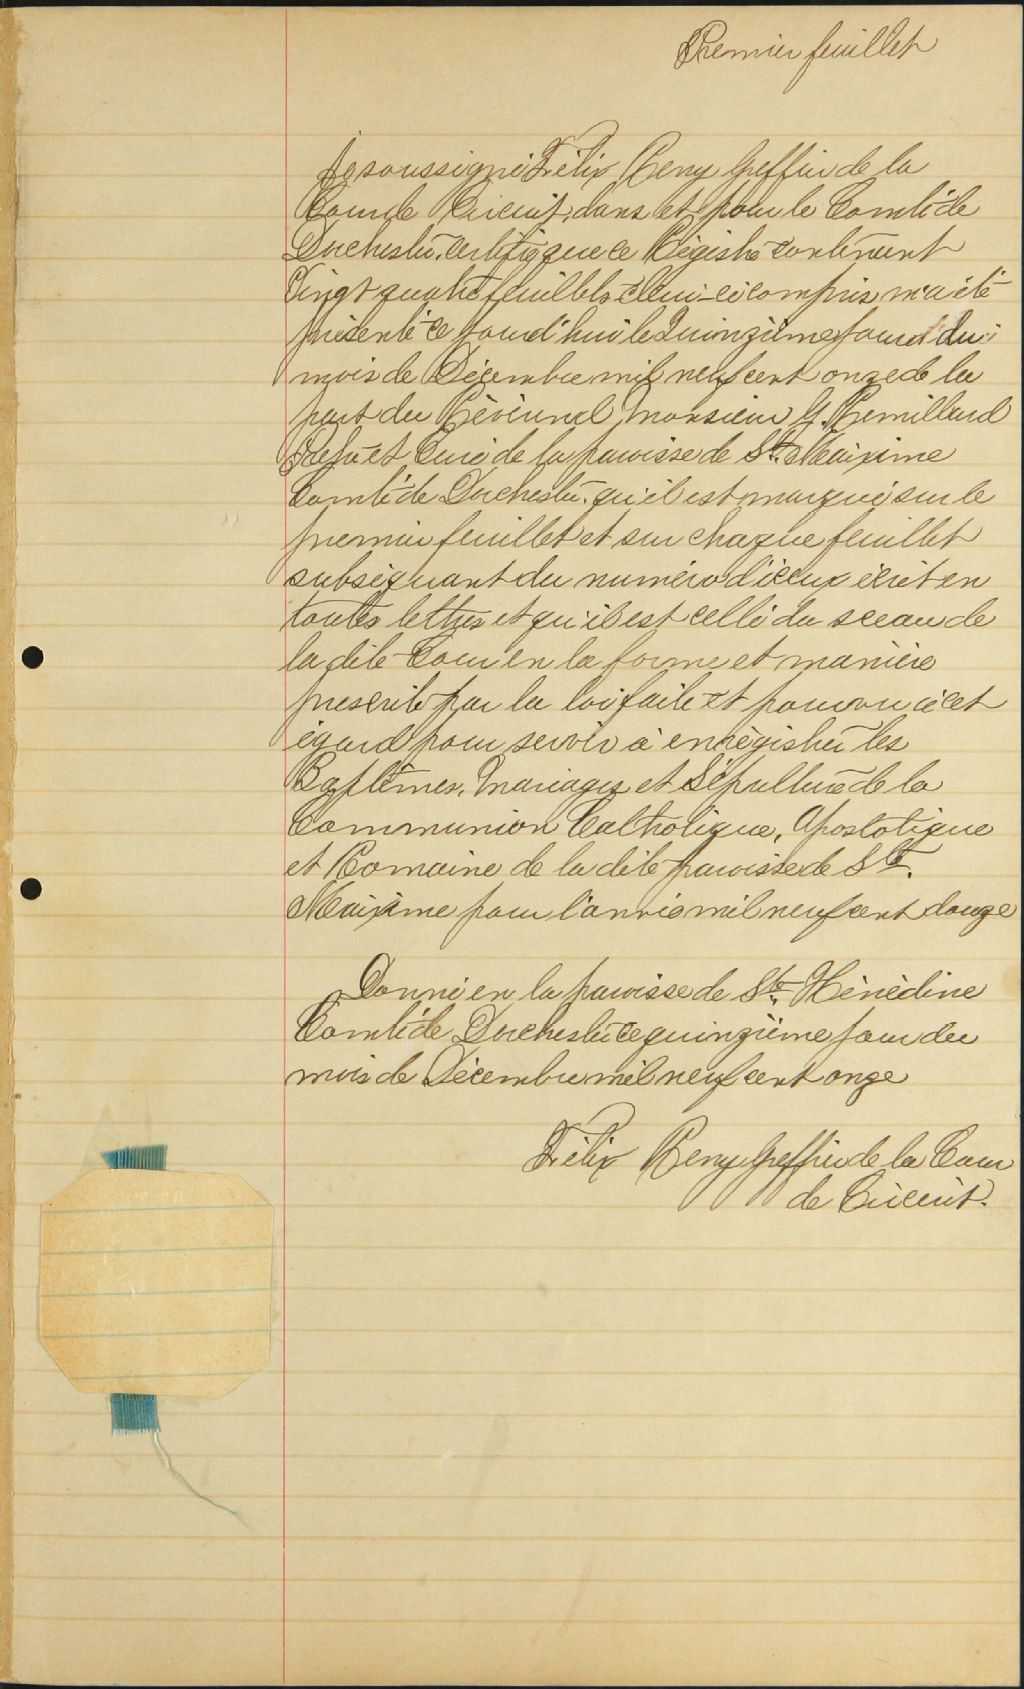 Premier feuillet
Je soussigné Félix Remy Greffier de la
Cour de Circuit, dans et pour le Comté de
Dorchester, certifie que ce Régistre contenant
Vingt quatre feuillets celui-ci compris m'a été
présenté ce jourd'hui le Quinzième jour du
mois de Décembre mil neuf cent onze de la
part du Révérend Monsieur G. Remillard
Prêtre et Curé de la paroisse de Ste. Maxime
Comté de Dorchester. qu'il est marqué sur le
premier feuillet et sur chaque feuillet
subséquant du numéro d'iceux écrit en
toutes lettres et qu'il est cellé du sceau de
la dite Cour en la forme et manière
prescrite par la loi faite et pourvu à cet
égard pour servir à enrégistrer les
Baptêmes, Mariages et Sépultures de la
Communion Catholique, Apostolique
et Romaine de la dite paroisse de Ste.
Maxime pour l'année mil neuf cent douze
Donné en la paroisse de Ste. Hénédine
Comté de Dorchester ce quinzième jour du
mois de Décembre mil neuf cent onze
Félix Remy Greffier de la Cour
de Circuit.